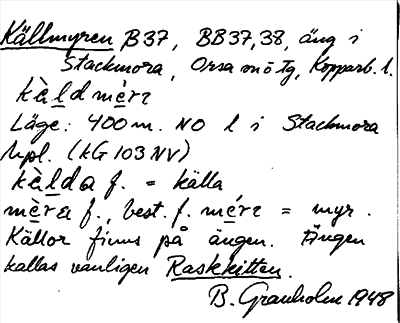 Källmyren B37, BB37,38, äng i
Stackmora, Orsa sn o tg, Kopparb. l.
kὲldmὲrɪ
Läge: 400 m. NO l i Stackmora
hpl. (kG 103 NV)
kὲlda f. = källa
mὲra f., best. f. mέrɪ = myr.
Källor finns på ängen. Ängen
kallas vanligen Raskkitten.
B. Granholm 1948